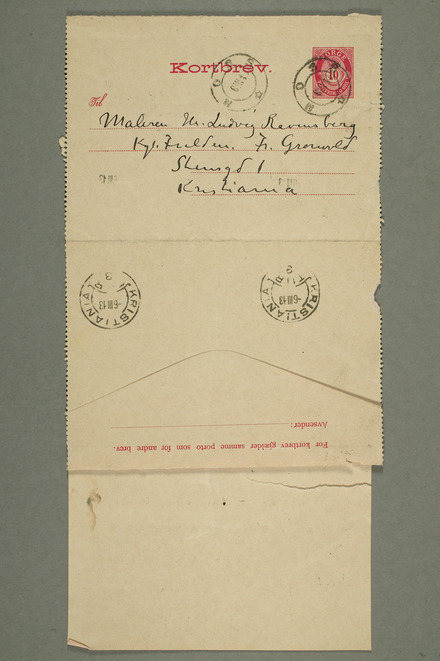 Kortbrev.
NORGE
10
MOSS
MOSS
Til
Maleren Hr. Ludvig Ravensberg
Kgl. Fuldm. Fr. Grønvold
Stensgd 1
Kristiania
KRISTIANIA
-6 III 13
3
KRISTIANIA
-6 III 13
3
Avsender:
For kortbrev gjælder samme porto som for andre brev.